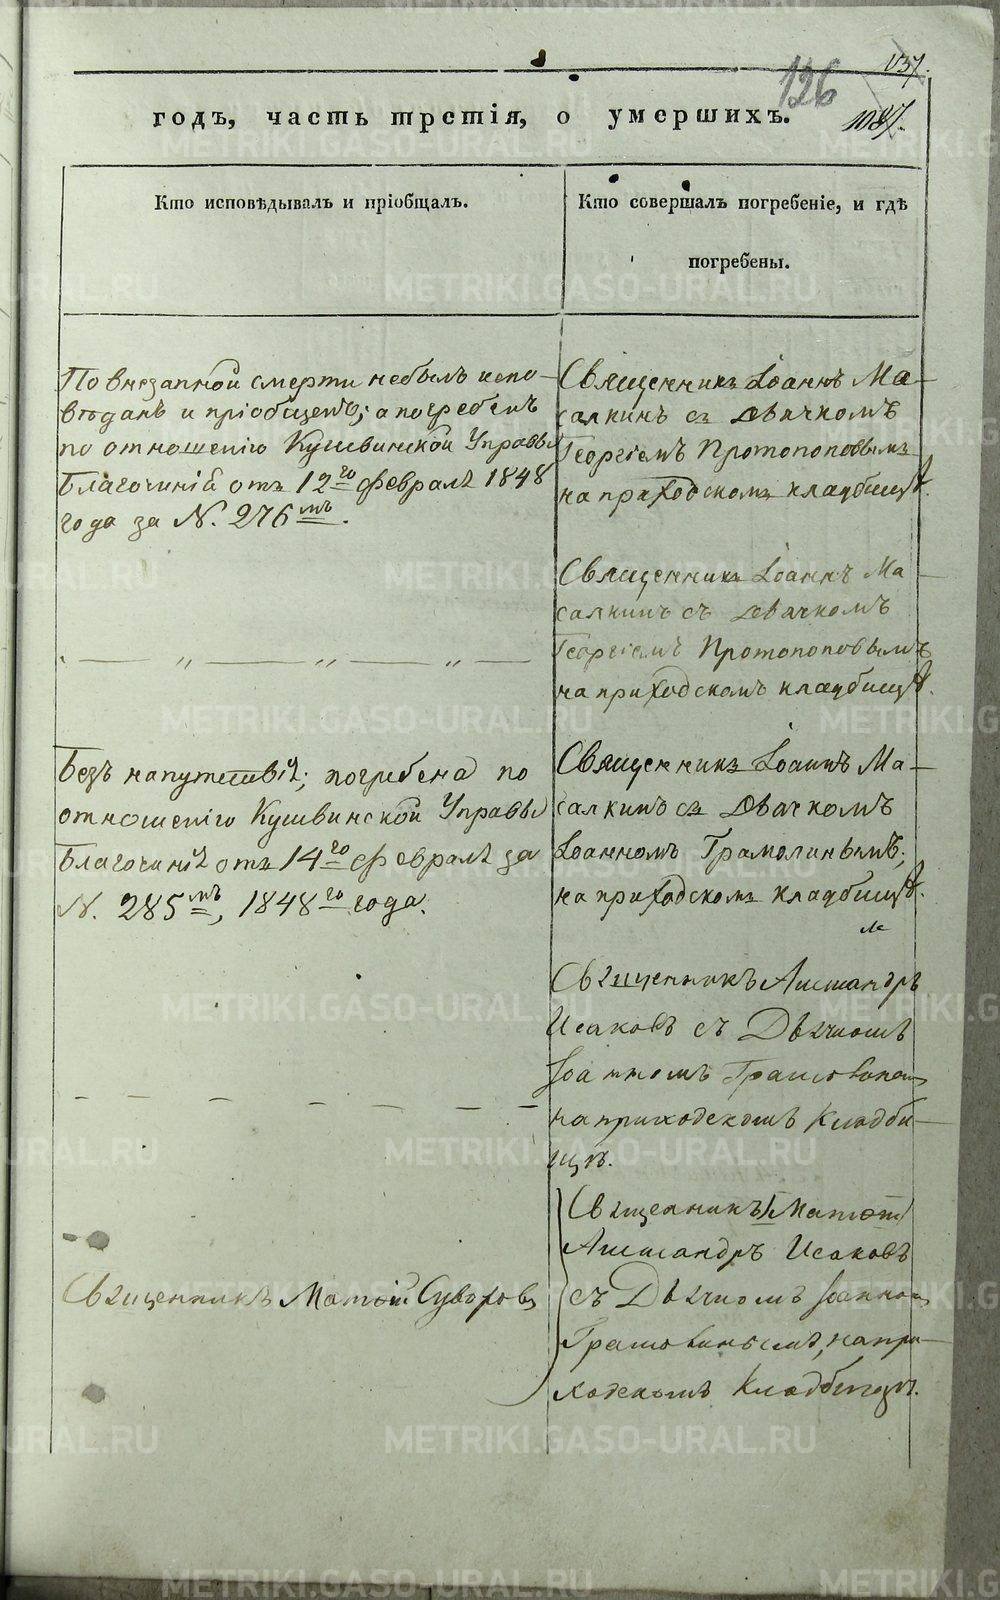 137.
126
годъ, часть третія, о умершихъ.
1087.
Кто исповѣдывалъ и пріобщалъ.
Кто совершалъ погребеніе, и гдѣ
погребены.
По внезапной смерти небылъ испо-
вѣданъ и пріобщенъ; а погребенъ
по отношенію Кушвинской Управы
Благочинія отъ 12го февраля 1848
года за N. 276мъ.
Священникъ Іоаннъ Ма-
салкинъ съ дьячкомъ
Георгіемъ Протопоповымъ
на приходскомъ кладбищѣ.
Священникъ Іоаннъ Ма-
салкинъ съ дьячкомъ
Георгіемъ Протопоповымъ
на приходскомъ кладбищѣ.
— „ — „ — „ —
Безъ напутствія; погребена по
отношенію Кушвинской Управы
Благочинія отъ 14го февраля за
N. 285мъ, 1848го года.
Священникъ Іоаннъ Ма-
салкинъ съ дьячкомъ
Іоанномъ Грамолинымъ;
на приходскомъ кладбищѣ.
Священникъ Александръ
Исаковъ съ Дьячкомъ
Іоанномъ
на приходскомъ Кладби-
щѣ.
Священникъ Матѳій Суворовъ
Священникъ Матѳій
Александръ Исаковъ
съ Дьячкомъ Іоанномъ
на при-
ходскомъ Кладбищѣ.
METRIKI.GASO-URAL.RU